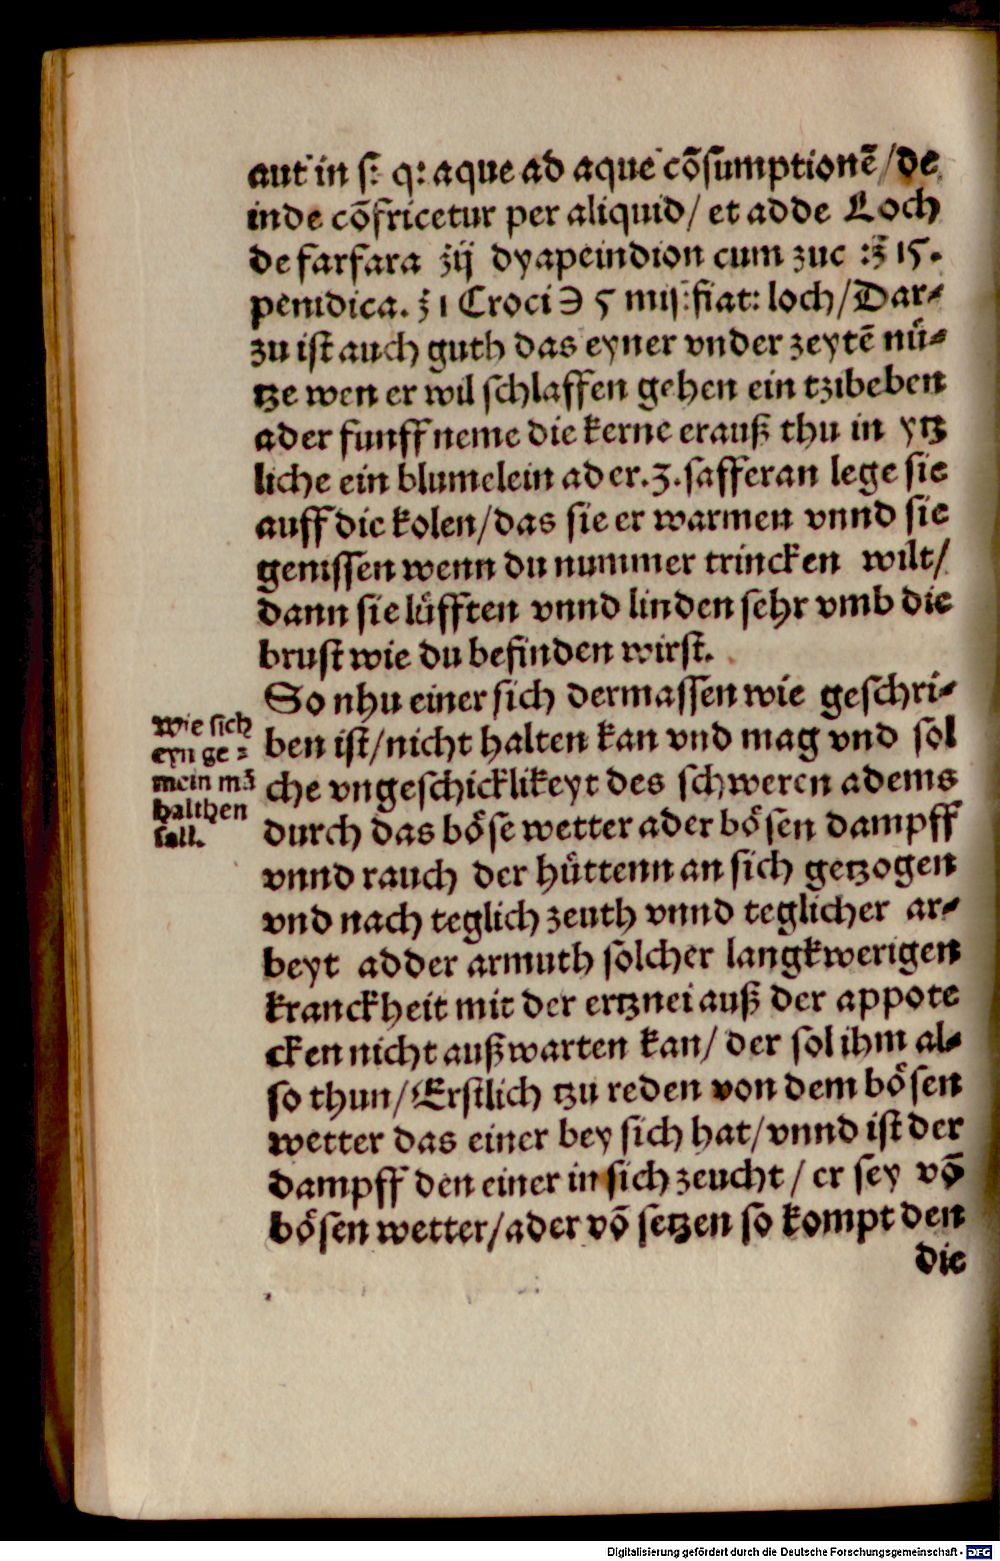 aut in ſ: q: aque ad aque cõſumptionẽ/de
inde cõfricetur per aliquid/ et adde Loch
de farfara ʒij dyapeindion cum zuc :ʒ 15.
penidica. ʒ 1 Croci Э 5 miſ:fiat: loch/Dar⸗
zu iſt auch guth das eyner vnder zeytẽ nuͤ⸗
tze wen er wil ſchlaffen gehen ein tzibeben
ader funff neme die kerne erauß thu in ytz
liche ein blumelein ader.3.ſafferan lege ſie
auff die kolen/das ſie er warmen vnnd ſie
geniſſen wenn du nummer trincken wilt/
dann ſie luͤfften vnnd linden ſehr vmb die
bruſt wie du befinden wirſt.
So nhu einer ſich dermaſſen wie geſchri⸗
ben iſt/nicht halten kan vnd mag vnd ſol
che vngeſchicklikeyt des ſchweren adems
durch das boͤſe wetter ader boͤſen dampff
vnnd rauch der huͤttenn an ſich getzogen
vnd nach teglich zeuth vnnd teglicher ar⸗
beyt adder armuth ſolcher langkwerigen
kranckheit mit der ertznei auß der appote
cken nicht außwarten kan/ der ſol ihm al⸗
ſo thun/Erſtlich tzu reden von dem boͤſen
wetter das einer bey ſich hat/vnnd iſt der
dampff den einer in ſich zeucht / er ſey võ
boͤſen wetter/ader võ ſetzen ſo kompt den
die
Wie ſich
eyn ge⸗
mein mã
halthen
ſall.
Digitalisierung gefördert durch die Deutsche Forschungsgemeinschaft - DFG